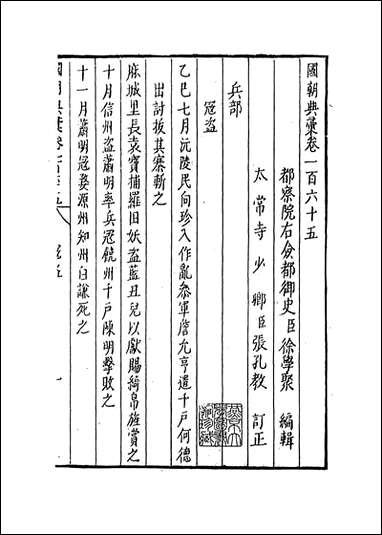 國朝典彙卷一百六十五
都察院右僉都御史臣徐學聚 編輯
太常寺少卿臣張孔教 訂正
兵部
冦盜
乙巳七月沅陵民向珍入作亂叅軍詹允亨遣千戶何德
出討拔其寨斬之
麻城里長袁寶捕羅田妖盜藍丑兒以獻賜綺帛旌賞之
十月信州盜蕭明率兵冦饒州千戶陳明擊敗之
十一月蕭明冦婺源州知州白謙死之
國朝典彙卷